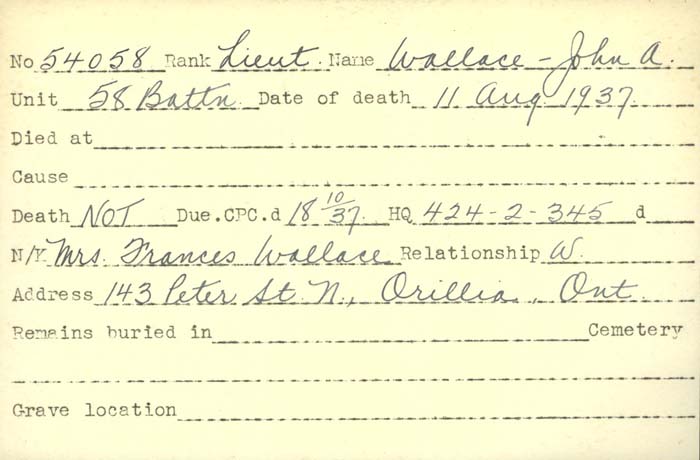 No 54058 Rank Lieut. Name Wallace - John A.
Unit 58 Battn. Date of death 11 Aug 1937
Died at
Cause
Death NOT Due.CPC.d 18 10/37 HQ 424-2-345 d
N/K Mrs. Frances Wallace Relationship W.
Address 143 Peter St. N., Orillia, Ont.
Remains buried in Cemetery
Grave location